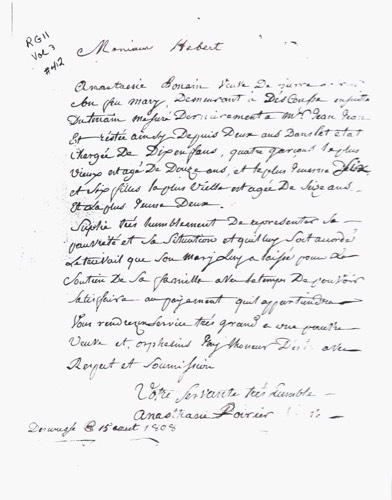 RG11
Vol 3
#412
Monieur Hebert
Anastasie Veuve De
feu mary, Demeurant à Descousse
Dutinain mesuré Dernièrement a Mr. Jean Jean
Et restée ainsy Depuis Deux ans Dans let état
Chargée De Dix enfans, quatre garcons le plus
vieux est agé De Douze ans, et le plus jeune
et Six filles la plus Vielle est agée De Seize ans
et la plus jeune Deux.
Suplie très humblement De representer Sa
pauvreté et Sa Situation et quil luy Soit acordé
Le travail que Son mary Luy a laissé pour Le
Soutien De Sa famille avec le temps De pouvoir
Satisfaire au payement quil appartiendra
Vous rendez un Service très grand a une pauvre
Veuve et orphelins avec
Respect et Soumission
Votre Servante très humble
Anasthasie Poirier
15 aout 1808